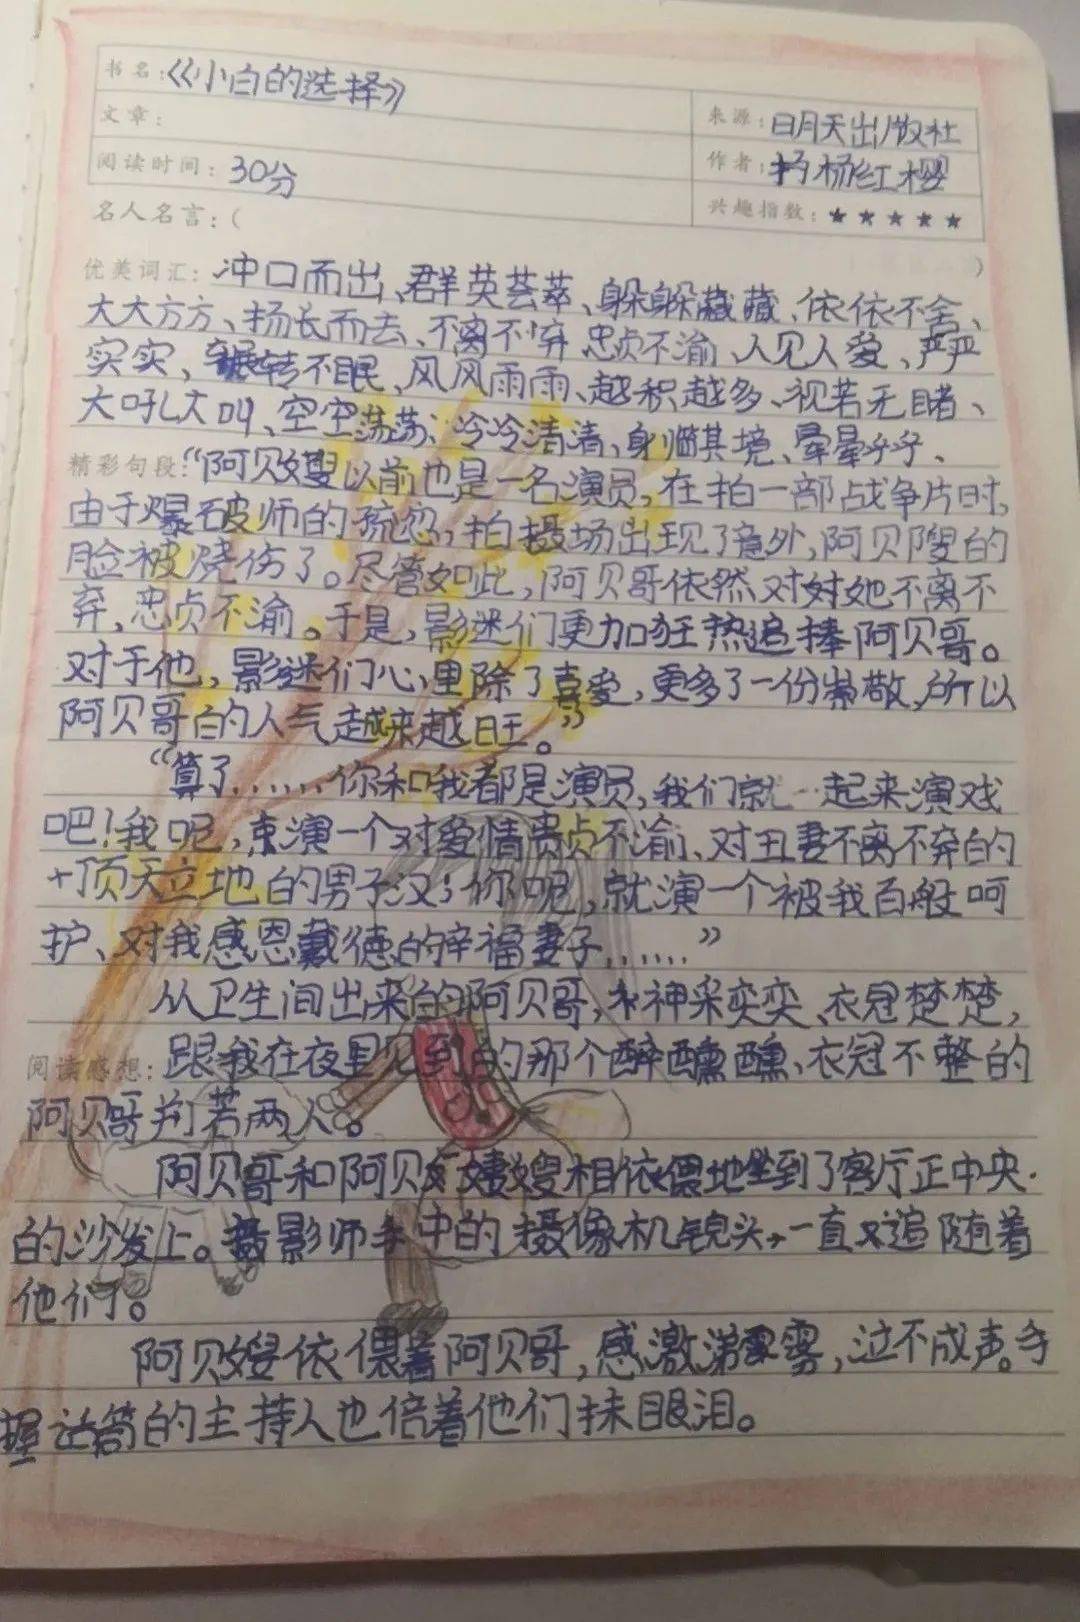 书名：《小白的选择》
来源：明天出版社
文章：
作者：杨红樱
阅读时间：30分
兴趣指数：★★★★★
名人名言：（ ）
优美词汇：冲口而出、群英荟萃、躲躲藏藏、依依不舍、
大大方方、扬长而去、不离不弃 忠贞不渝、人见人爱、严严
实实，辗转不眠、风风雨雨、越积越多、视若无睹、
大吼大叫、空空荡荡、冷冷清清、身临其境、晕晕乎乎、
精彩句段：“阿贝嫂以前也是一名演员，在拍一部战争片时，
由于爆破师的疏忽，拍摄场出现了意外，阿贝嫂的
脸被烧伤了。尽管如此，阿贝哥依然对她不离不
弃，忠贞不渝。于是，影迷们更加狂热追捧阿贝哥。
对于他，影迷们心里除了喜爱，更多了一份崇敬，所以
阿贝哥的人气越来越旺。”
“算了……你和我都是演员，我们就一起来演戏
吧！我呢，来演一个对爱情贞不渝、对丑妻不离不弃的
顶天立地的男子汉；你呢，就演一个被我百般呵
护、对我感恩戴德的幸福妻子……”
从卫生间出来的阿贝哥，神采奕奕、衣冠楚楚，
阅读感想：跟我在夜里见到的那个醉醺醺、衣冠不整的
阿贝哥判若两人。
阿贝哥和阿贝嫂相依偎地坐到了客厅正中央
的沙发上。摄影师手中的摄像机镜头，一直追随着
他们。
阿贝嫂依偎着阿贝哥，感激涕零，泣不成声。手
握话筒的主持人也陪着他们抹眼泪。